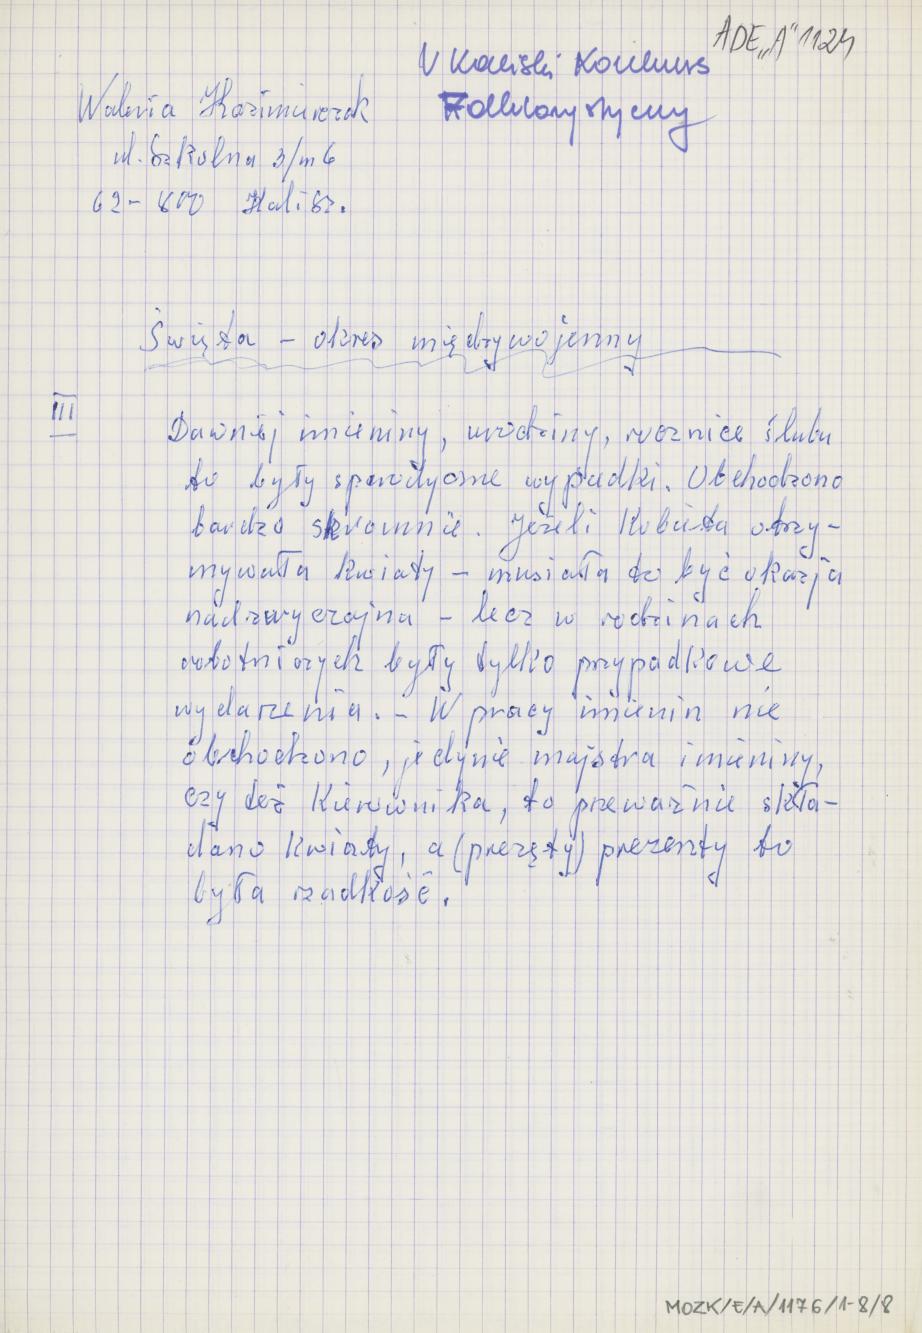 ADE „A" 1124
V Kaliski Konkurs
Folklorystyczny
Waleria Kaźmierczak
ul. Szkolna 3/m 6
62-800 Kalisz.
Święta – okres międzywojenny
III
Dawniej imieniny, urodziny, rocznice ślubu
to były sporadyczne wypadki. Obchodzono
bardzo skromnie. Jeżeli Kobieta otrzy-
mywała kwiaty – musiała to być okazja
nadzwyczajna – lecz w rodzinach
robotniczych były tylko przypadkowe
wydarzenia. – W pracy imienin nie
obchodzono, jedynie majstra imieniny,
czy też Kierownika, to przeważnie skła-
dano kwiaty, a (prezęty) prezenty to
była rzadkość.
MOZK/E/A/1176/1-8/8